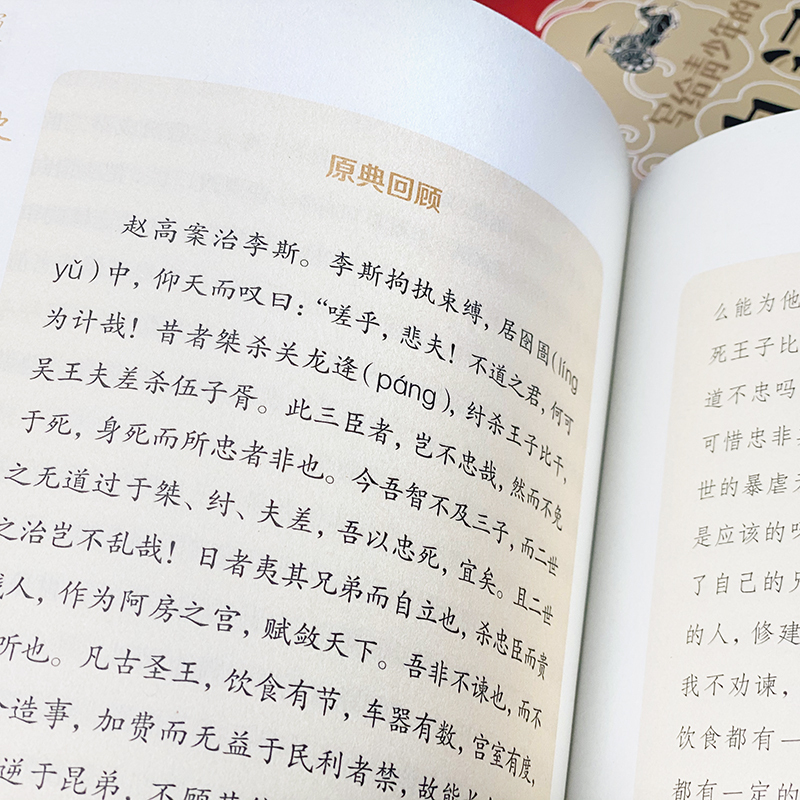 史
写给青少年的
原典回顾
赵高案治李斯。李斯拘执束缚，居囹圄(líng
yǔ)中，仰天而叹曰：“嗟乎，悲夫！不道之君，何可
为计哉！昔者桀杀关龙逢(páng)，纣杀王子比干，
吴王夫差杀伍子胥。此三臣者，岂不忠哉，然而不免
于死，身死而所忠者非也。今吾智不及三子，而二世
之无道过于桀、纣、夫差，吾以忠死，宜矣。且二世
之治岂不乱哉！日者夷其兄弟而自立也，杀忠臣而贵
贱人，作为阿房之宫，赋敛天下。吾非不谏也，而不
听也。凡古圣王，饮食有节，车器有数，宫室有度，
造事，加费而无益于民利者禁，故能长
逆于昆弟，不顾其
么能为他
死王子比
道不忠吗
可惜忠非
世的暴虐
是应该的
了自己的兄
的人，修建
我不劝谏，
饮食都有一
都有一定的